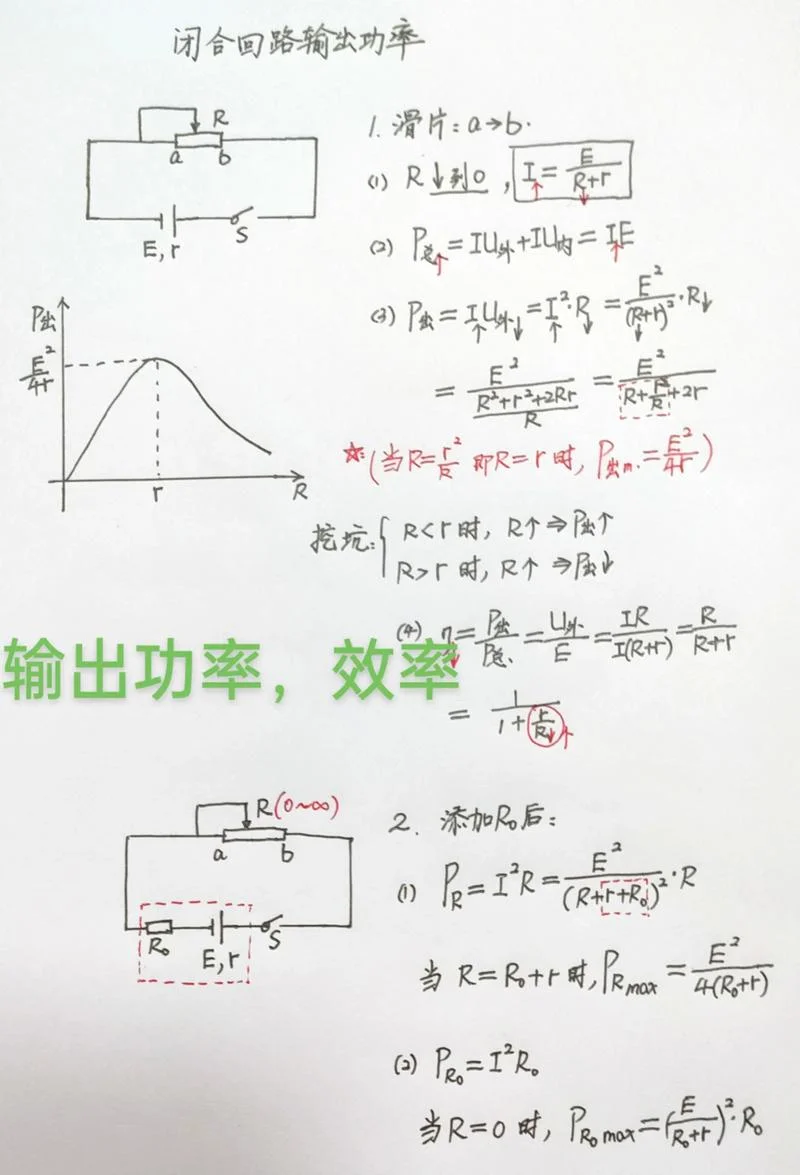 闭合回路输出功率
R
a b
E, r S
1. 滑片: a→b.
(1) R↓到0, I↑ = E/(R+r)↓
(2) P总↑ = IU外 + IU内 = I↑E
(3) P出 = I↑U外↓ = I²↑·R↓ = E²/(R+r)²↓·R↓
= E²/((R²+r²+2Rr)/R) = E²/(R+r²/R+2r)
☆: (当R=r²/R 即R=r时, P出m. = E²/4r)
P出
E²/4r
r R
挖坑: { R<r时, R↑ ⇒ P出↑
R>r时, R↑ ⇒ P出↓
(4) η↓ = P出/P总. = U外/E = IR/I(R+r) = R/(R+r)
= 1/(1+r/R↓↑)
输出功率，效率
R(0~∞)
a b
R₀ E, r S
2. 添加R₀后:
(1) P_R = I²R = E²/(R+r+R₀)²·R
当R=R₀+r时, P_Rmax = E²/4(R₀+r)
(2) P_R₀ = I²R₀
当R=0时, P_R₀max = (E/(R₀+r))²·R₀